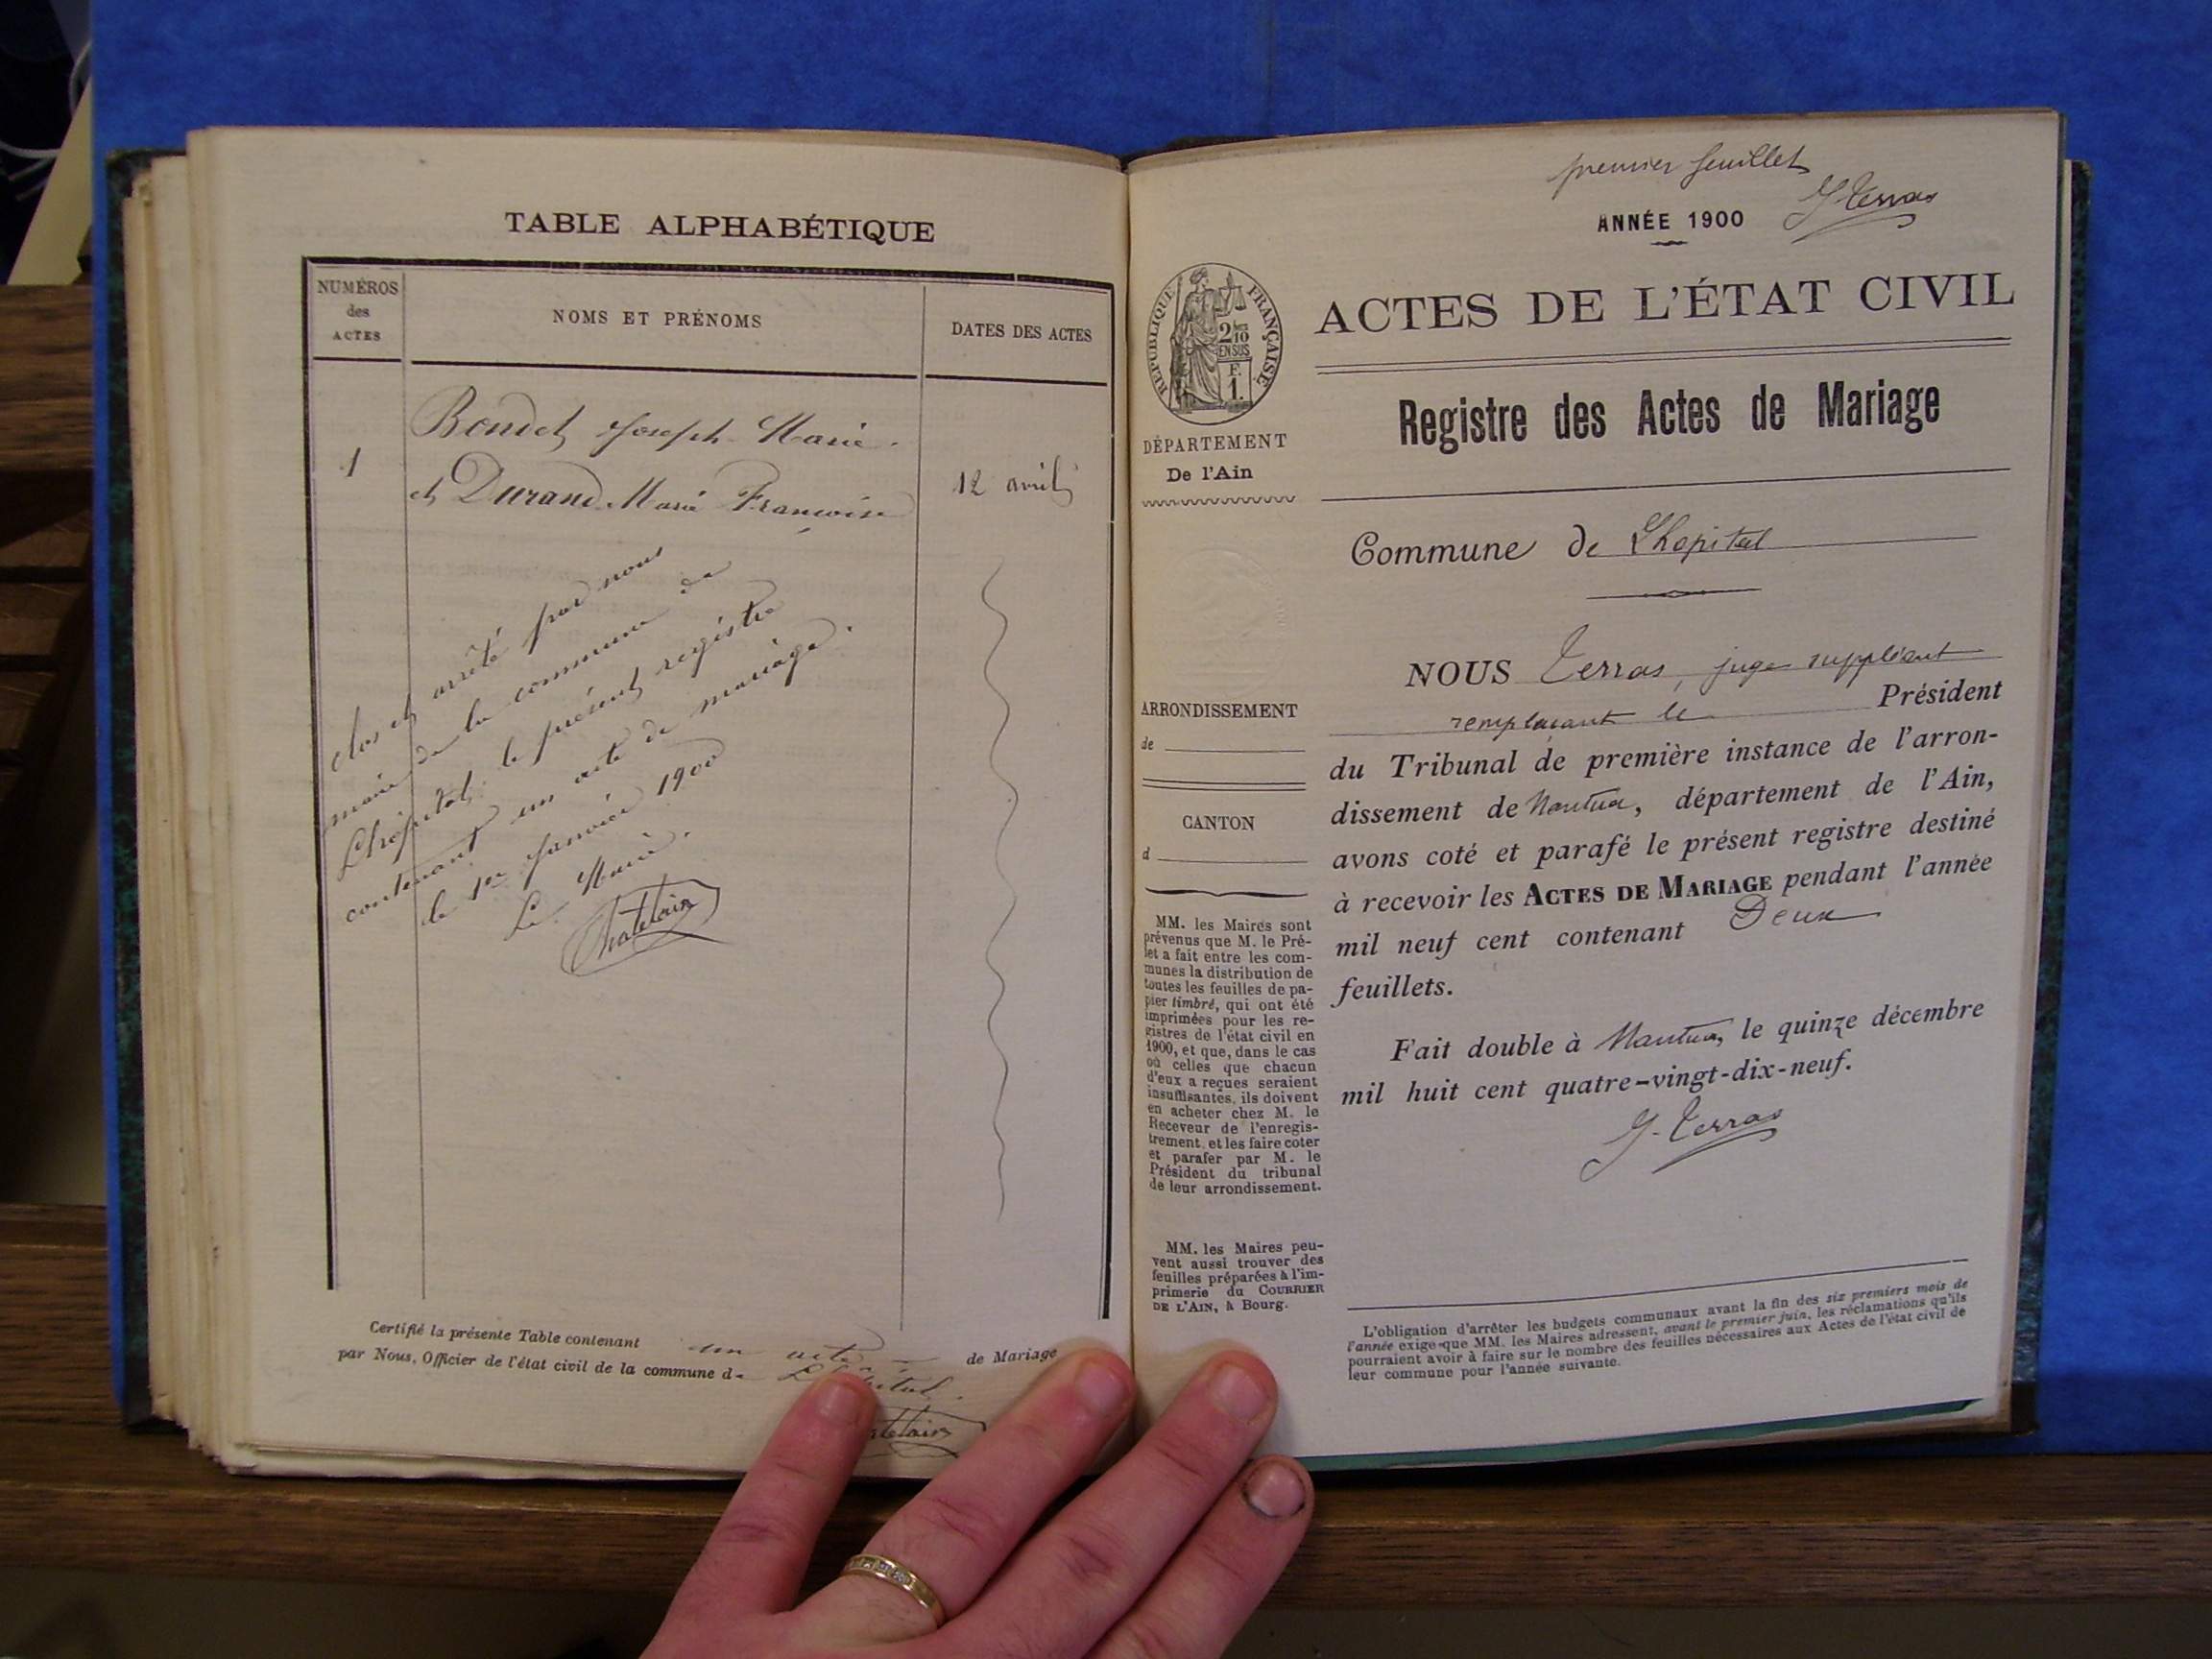 TABLE ALPHABÉTIQUE
NUMÉROS
des
ACTES
NOMS ET PRÉNOMS
DATES DES ACTES
1
Bondet Joseph Marie
et Durand Marie Françoise
12 avril
clos et arrêté par nous
maire de la commune de
Lhopital le présent registre
contenant un acte de mariage.
le 1er Janvier 1900
Le Maire.
Chatelain
Certifié la présente Table contenant un acte de Mariage
par Nous, Officier de l'état civil de la commune de
premier feuillet
G Terras
ANNÉE 1900
RÉPUBLIQUE FRANÇAISE
2/10
EN SUS
F.
1.
ACTES DE L'ÉTAT CIVIL
Registre des Actes de Mariage
DÉPARTEMENT
De l'Ain
Commune de Lhopital
NOUS Terras, juge suppléant
remplaçant le Président
du Tribunal de première instance de l'arron-
dissement de Nantua, département de l'Ain,
avons coté et parafé le présent registre destiné
à recevoir les ACTES DE MARIAGE pendant l'année
mil neuf cent contenant Deux
feuillets.
Fait double à Nantua, le quinze décembre
mil huit cent quatre-vingt-dix-neuf.
G. Terras
ARRONDISSEMENT
de
CANTON
d
MM. les Maires sont
prévenus que M. le Pré-
fet a fait entre les com-
munes la distribution de
toutes les feuilles de pa-
pier timbré, qui ont été
imprimées pour les re-
gistres de l'état civil en
1900, et que, dans le cas
où celles que chacun
d'eux a reçues seraient
insuffisantes, ils doivent
en acheter chez M. le
Receveur de l'enregis-
trement, et les faire coter
et parafer par M. le
Président du tribunal
de leur arrondissement.
MM. les Maires peu-
vent aussi trouver des
feuilles préparées à l'im-
primerie du COURRIER
DE L'AIN, à Bourg.
L'obligation d'arrêter les budgets communaux avant la fin des six premiers mois de
l'année exige que MM. les Maires adressent, avant le premier juin, les réclamations qu'ils
pourraient avoir à faire sur le nombre des feuilles nécessaires aux Actes de l'état civil de
leur commune pour l'année suivante.